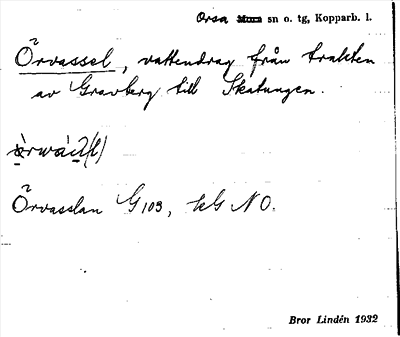 Orsa Mora sn o. tg, Kopparb. l.
Örvassel, vattendrag från trakten
av Gravberg till Skatungen.
Örvasslan G 103, kG NO.
Bror Lindén 1932